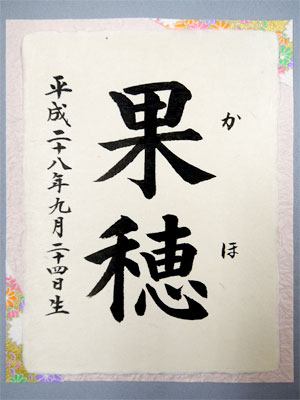 果穂
かほ
平成二十八年九月二十四日生